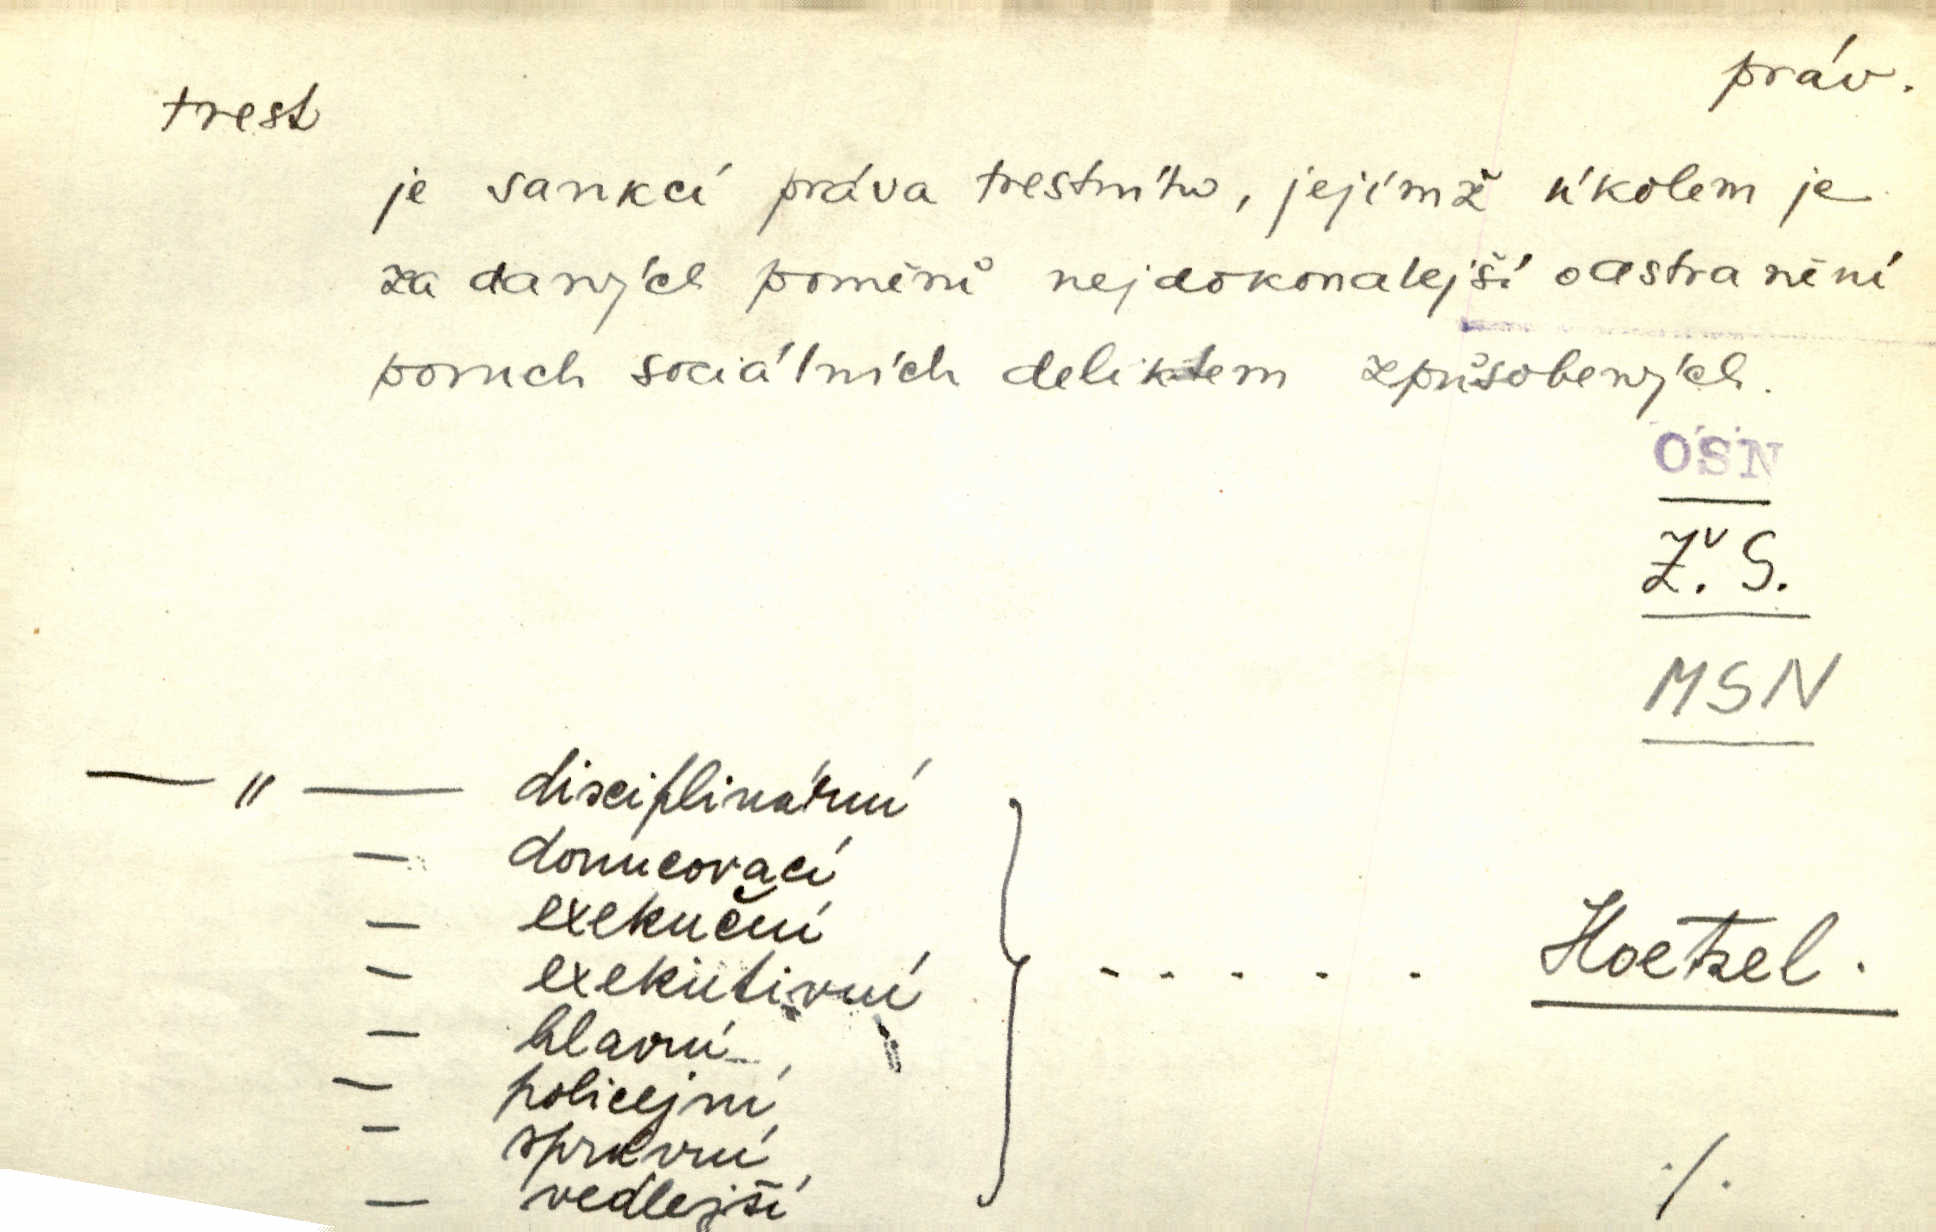 práv.
trest
je sankcí práva trestního, jejímž úkolem je
za daných poměrů nejdokonalejší odstranění
poruch sociálních deliktem způsobených.
OSN
Ž. S.
MSN
— " — disciplinární
— donucovací
— exekuční
— exekutivní
— hlavní
— policejní
— správní
— vedlejší
. . . . . Hoetzel.
./.